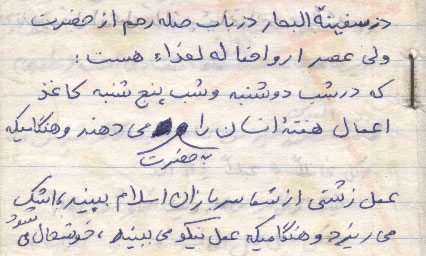 در سفینة البحار در باب صله رحم از حضرت
ولی عصر ارواحنا له لفداء هست :
که در شب دوشنبه و شب پنج شنبه کاغذ
اعمال هفتهٔ انسان را می دهند و هنگامیکه
به حضرت
عمل زشتی از شما سربازان اسلام ببیند، اشک
می ریزد و هنگامیکه عمل نیکو می بیند، خوشحال می شود